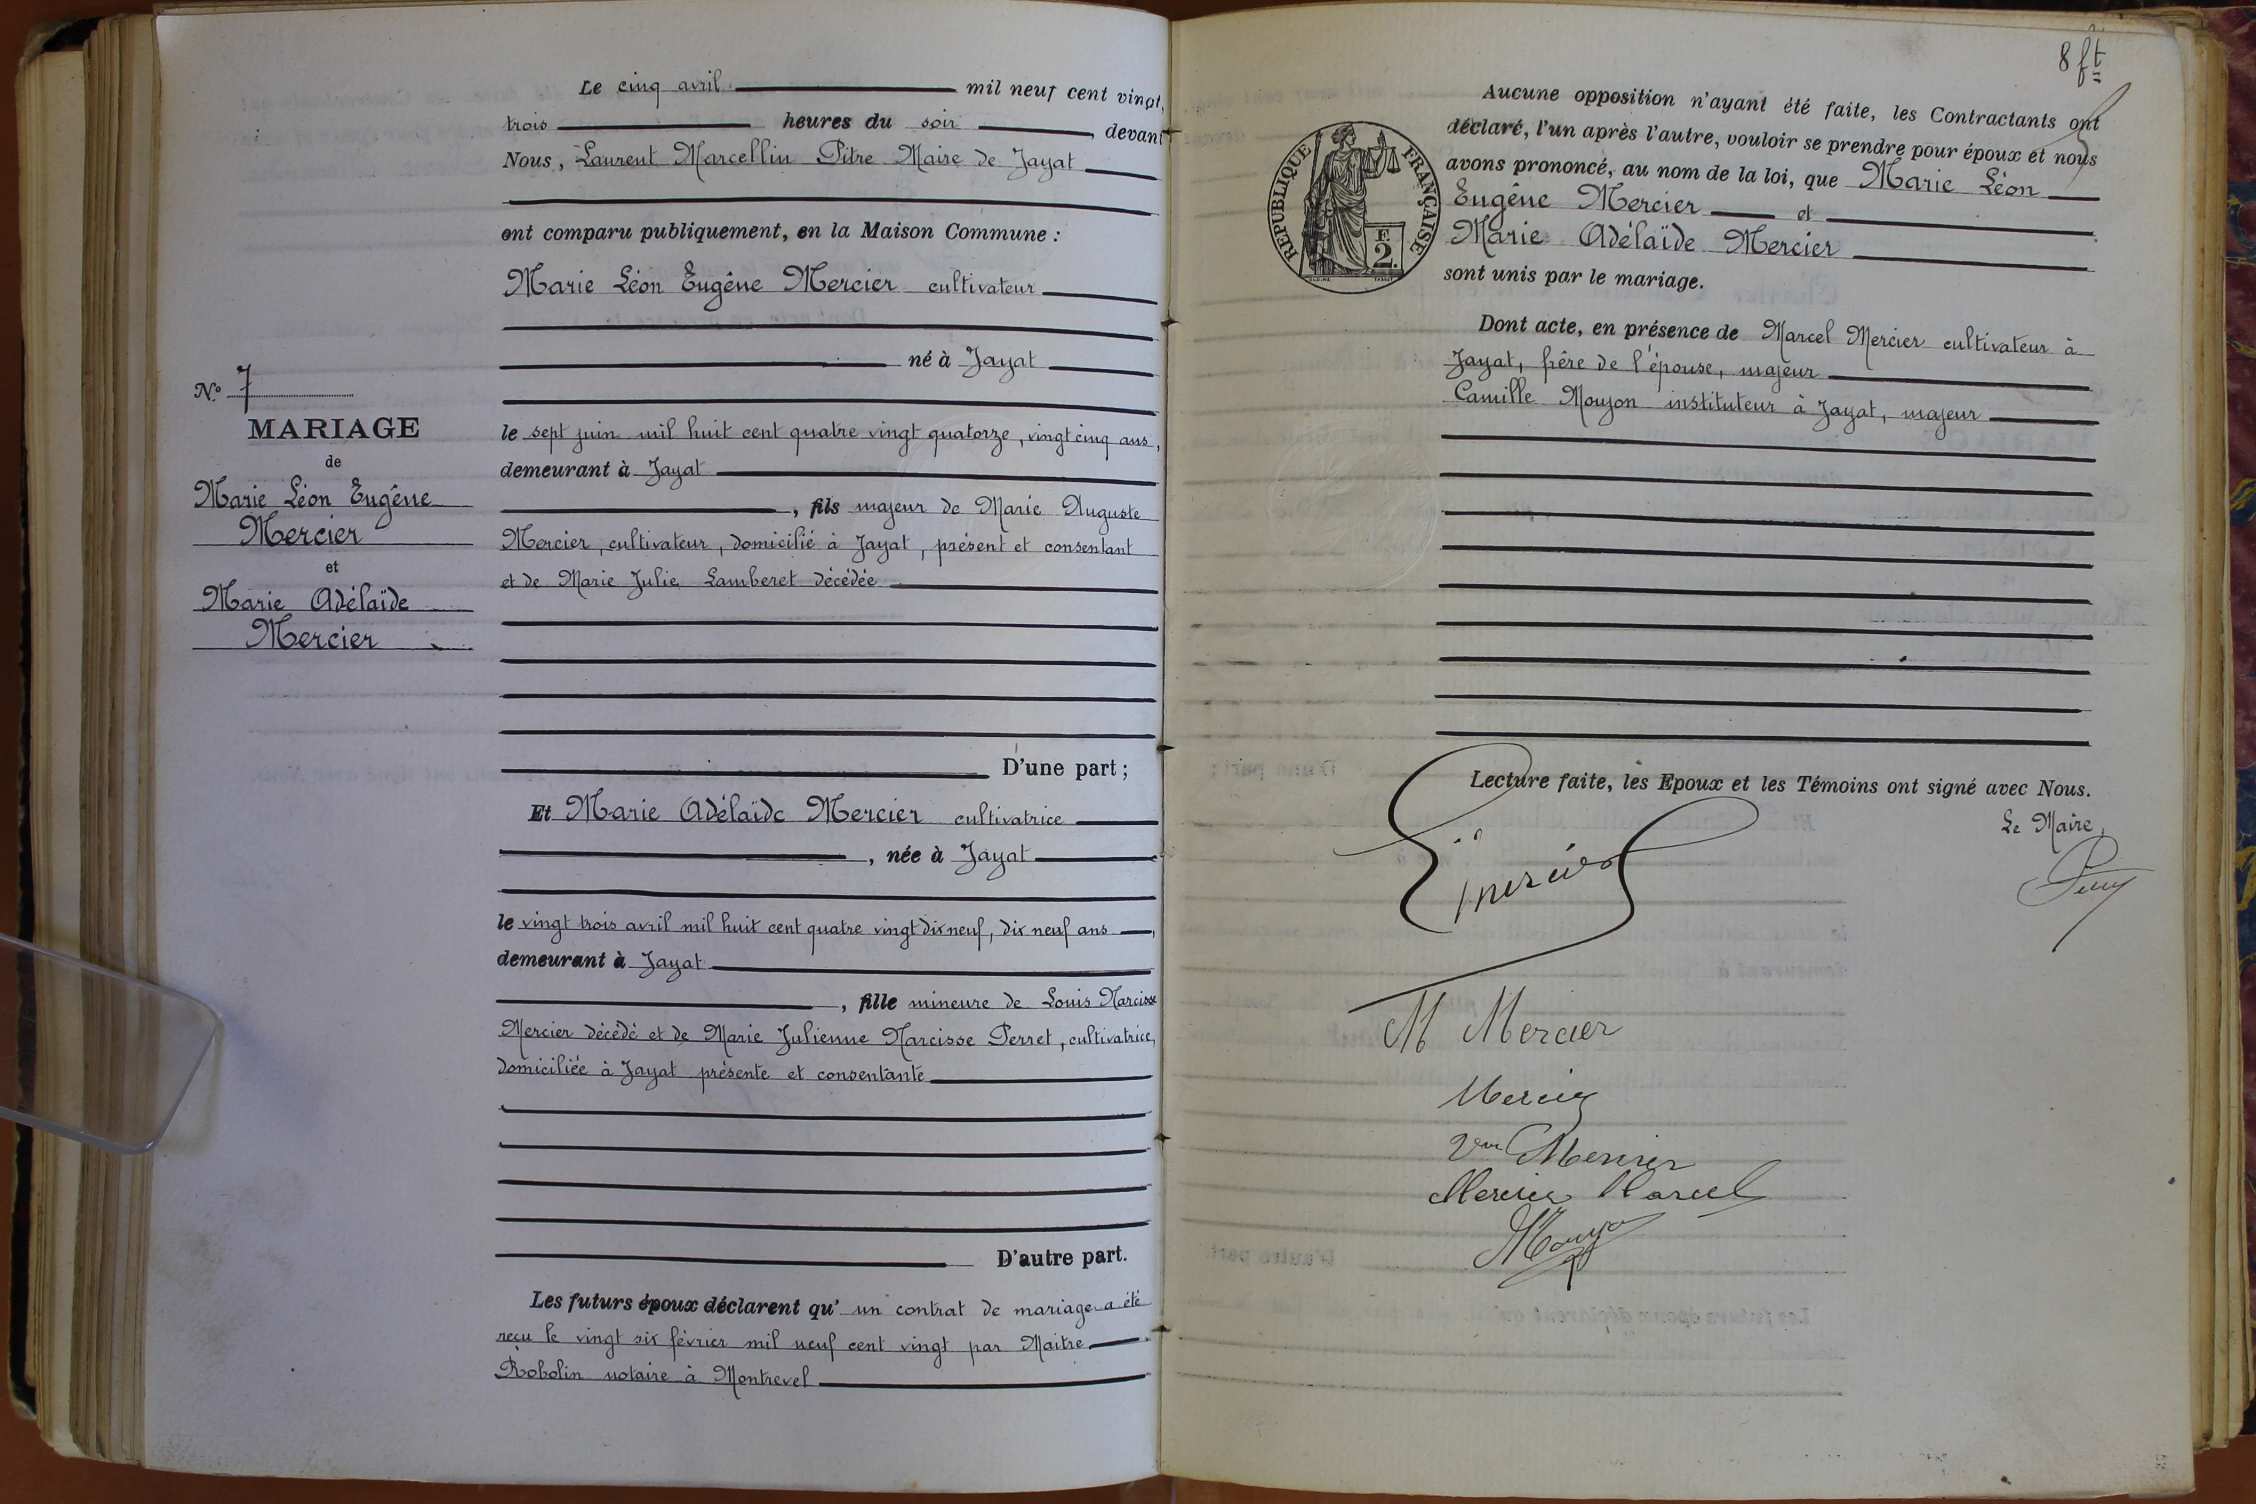 Le cinq avril mil neuf cent vingt,
trois heures du soir, devant
Nous, Laurent Marcellin Pitre Maire de Jayat
ont comparu publiquement, en la Maison Commune :
Marie Léon Eugène Mercier cultivateur
né à Jayat
le sept juin mil huit cent quatre vingt quatorze, vingt cinq ans,
demeurant à Jayat
, fils majeur de Marie Auguste
Mercier, cultivateur, domicilié à Jayat, présent et consentant
et de Marie Julie Lamberet décédée
D'une part ;
Et Marie Adélaïde Mercier cultivatrice
, née à Jayat
le vingt trois avril mil huit cent quatre vingt dix neuf, dix neuf ans,
demeurant à Jayat
, fille mineure de Louis Narcisse
Mercier décédé et de Marie Julienne Narcisse Perret, cultivatrice,
domiciliée à Jayat présente et consentante
D'autre part.
Les futurs époux déclarent qu' un contrat de mariage a été
reçu le vingt six février mil neuf cent vingt par Maitre
Robolin notaire à Montrevel
N° 7
MARIAGE
de
Marie Léon Eugène
Mercier
et
Marie Adélaïde
Mercier
8 ft
Aucune opposition n'ayant été faite, les Contractants ont
déclaré, l'un après l'autre, vouloir se prendre pour époux et nous
avons prononcé, au nom de la loi, que Marie Léon
Eugène Mercier et
Marie Adélaïde Mercier
sont unis par le mariage.
RÉPUBLIQUE FRANÇAISE
F.
2.
Dont acte, en présence de Marcel Mercier cultivateur à
Jayat, frère de l'épouse, majeur
Camille Mouyon instituteur à Jayat, majeur
Lecture faite, les Epoux et les Témoins ont signé avec Nous.
Le Maire,
Mercier
M Mercier
Mercier
Vve Mercier
Mercier Marcel